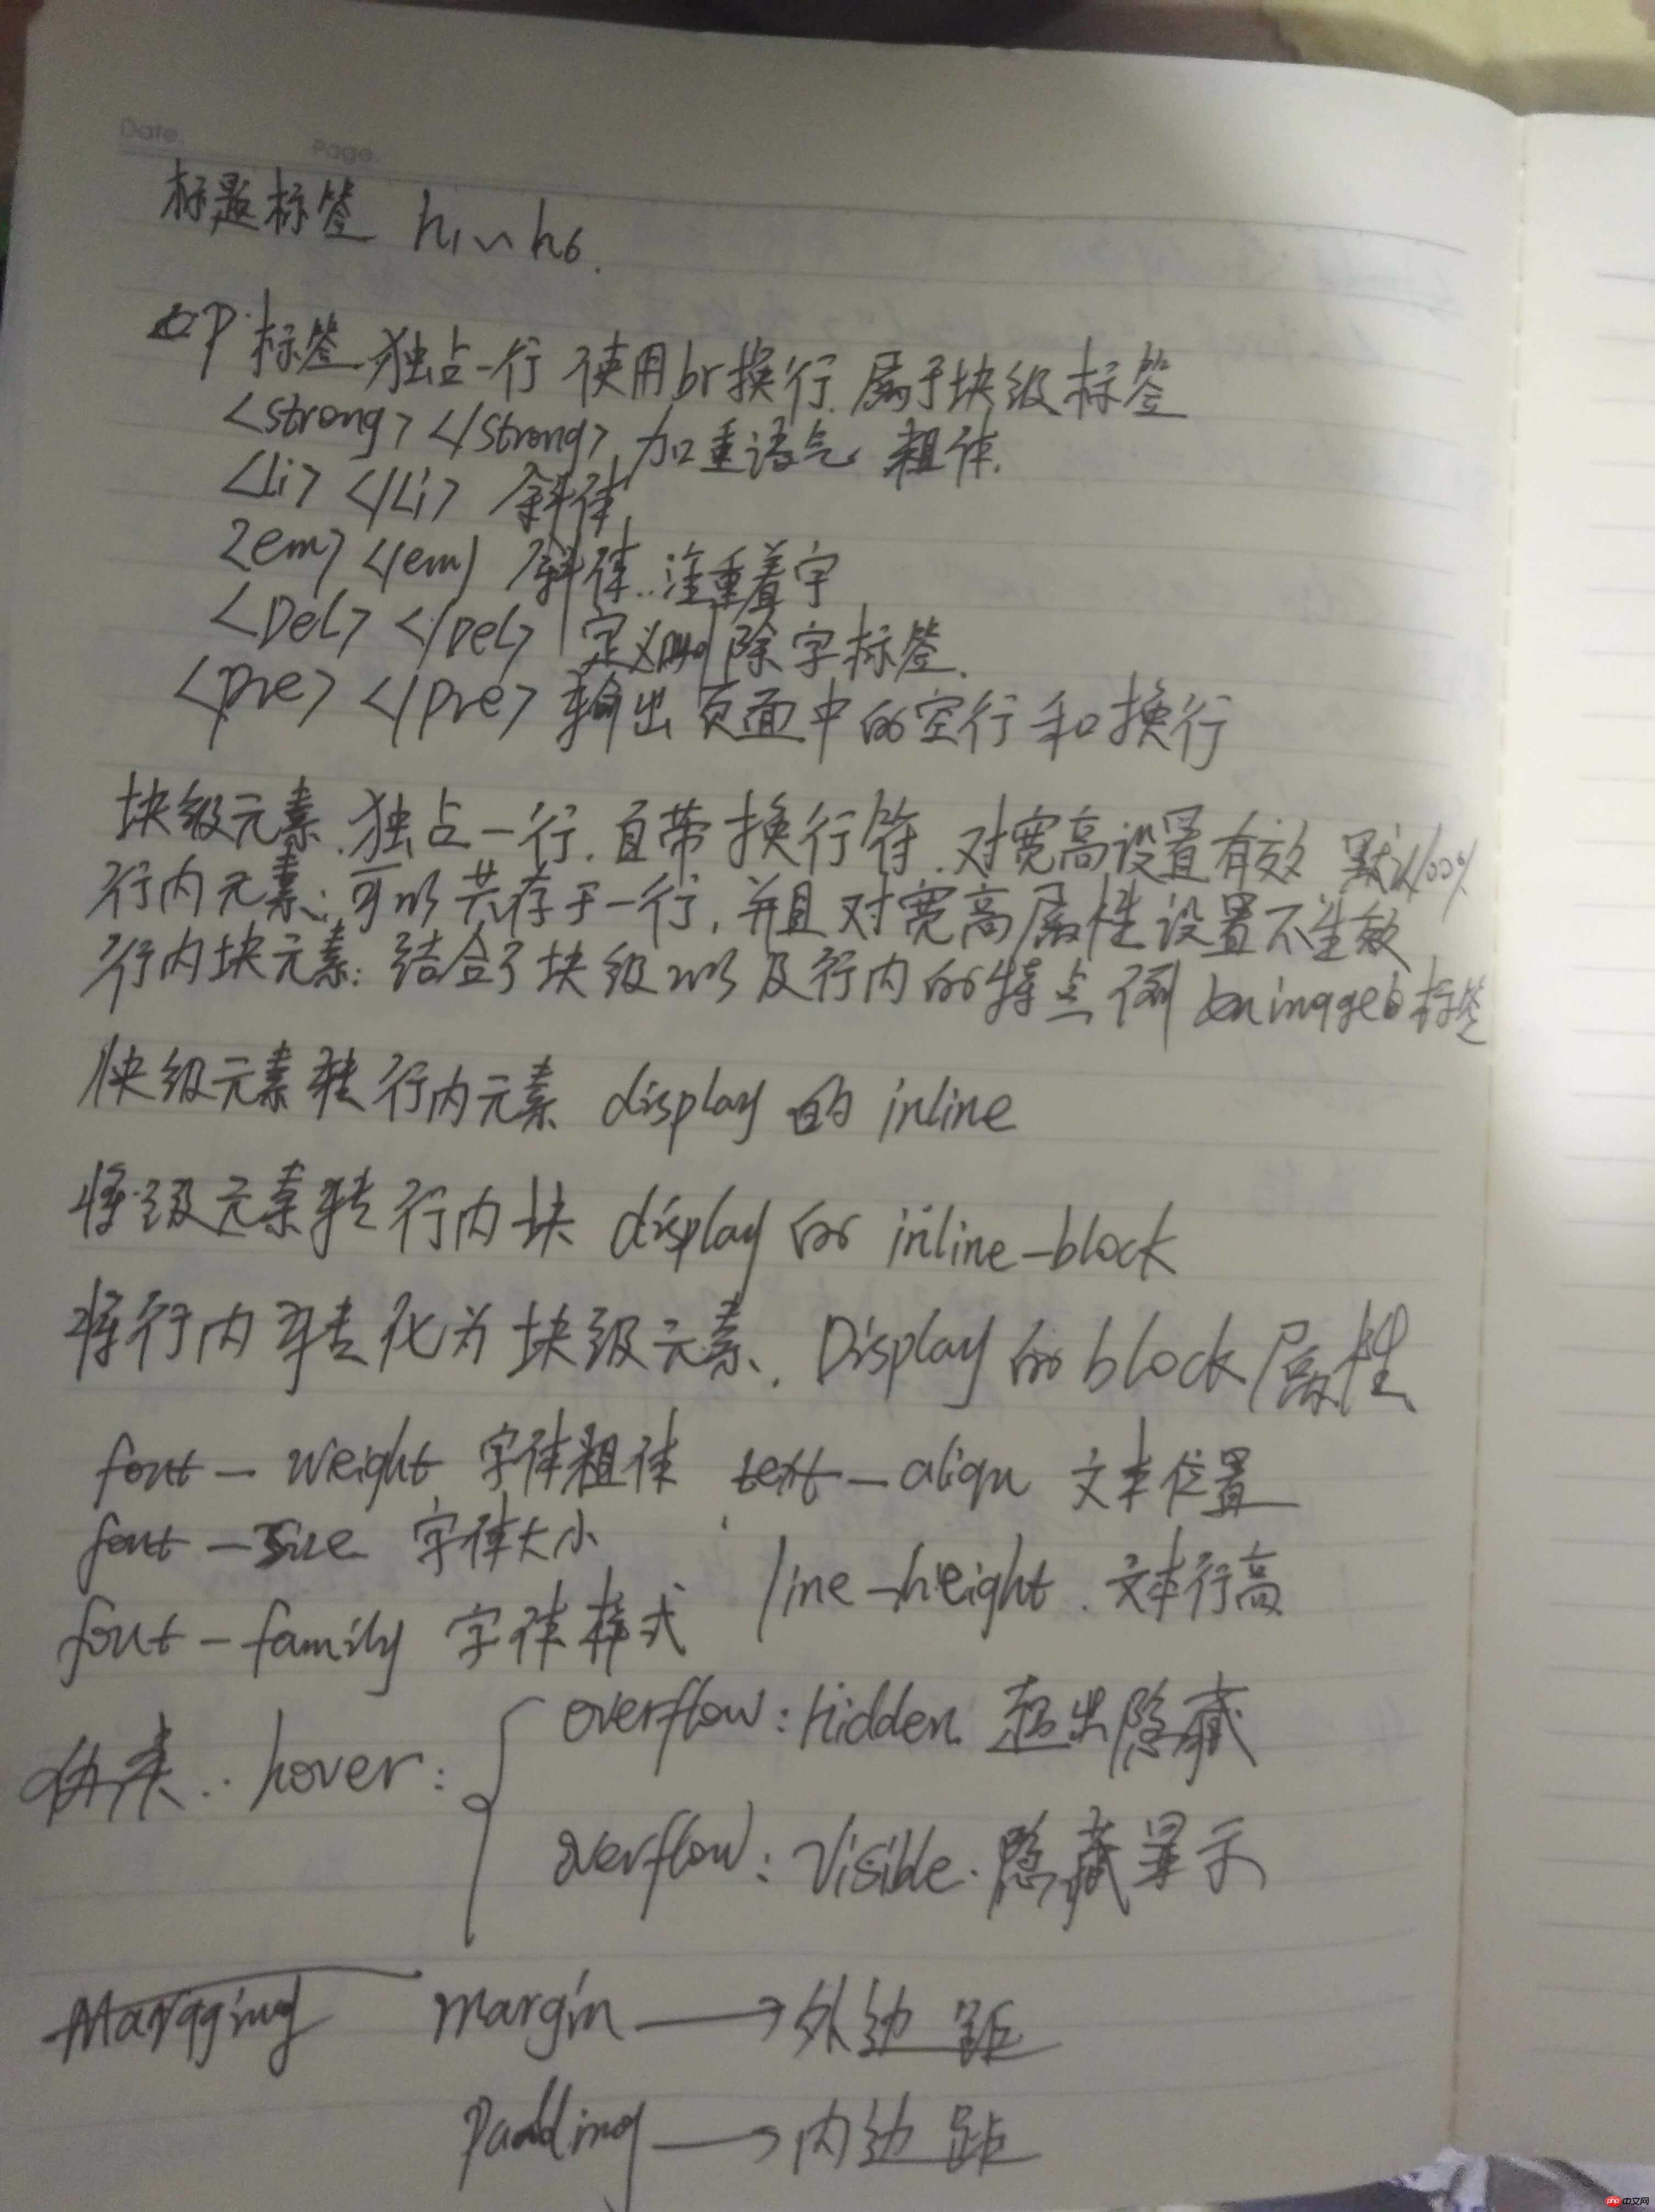 Date.
Page.
标题标签 h1~h6.
P标签 独占一行 使用br换行. 属于块级标签
<strong> </strong> 加重语气 粗体.
<li> </Li> 斜体
<em> </em> 斜体..注重着字
<Del> </Del> 定义删除字标签.
<pre> </pre> 输出页面中的空行和换行
块级元素.独占一行.自带换行符.对宽高设置有效 默认100%
行内元素:可以共存于一行,并且对宽高属性设置不生效
行内块元素:结合了块级以及行内的特点 例 image的标签
块级元素转行内元素 display 的 inline
将级元素转行内块 display 的 inline-block
将行内转化为块级元素. Display的block属性
font-weight 字体粗体 text-align 文本位置
font-size 字体大小
line-height. 文本行高
font-family 字体样式
伪类.. hover:
overflow:hidden. 超出隐藏
overflow:Visible.隐藏显示
margin → 外边距
Padding → 内边距
php中文网